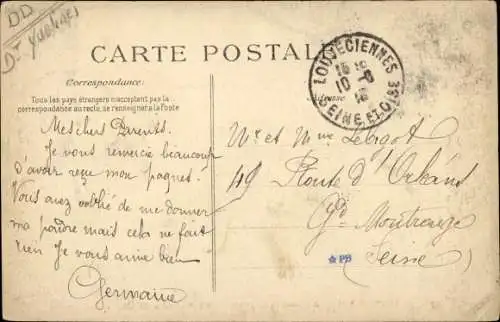 DD
Dt Yvelines
CARTE POSTALE
LOUVECIENNES
15 10
10-8
16
SEINE-ET-OISE
Correspondance:
Tous les pays étrangers n'acceptent pas la
correspondance au recto, se renseigner à la Poste
Adresse
Mes chers Parents.
Je vous remercie beaucoup
d'avoir reçu mon paquet.
Vous avez oublié de me donner
ma poudre mais cela ne fait
rien Je vous aime bien
Germaine
Mr et Mme
119 Route d'Orléans
Gd Montrouge
(Seine)
PB